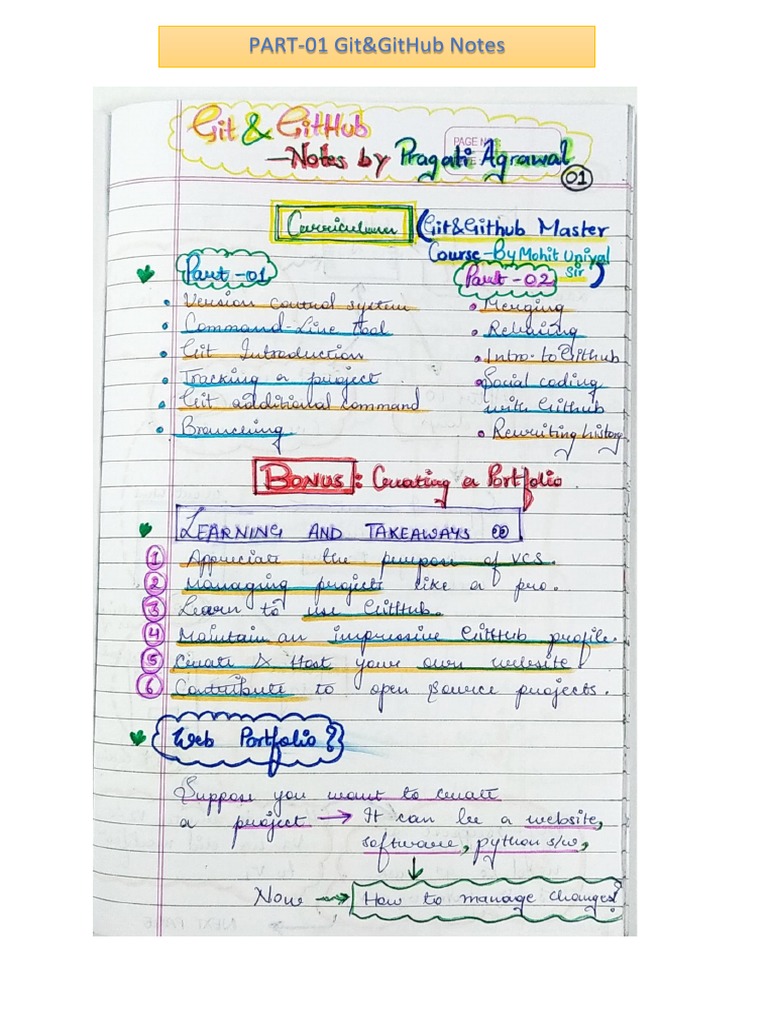 PART-01 Git&GitHub Notes
Git & GitHub
PAGE NO.
-Notes by Pragati Agrawal
01
Curriculum (Git&Github Master
Course-By Mohit Uniyal
Sir)
Part-01
Part-02
• Version control system
• Merging
• Command-Line tool
• Rebasing
• Git Introduction
• Intro. to Github
• Tracking a project
• Social coding
• Git additional command
with Github
• Branching
• Rewriting history
BONUS: Creating a Portfolio
LEARNING AND TAKEAWAYS
1 Appreciate the purpose of VCS.
2 Managing project like a pro.
3 Learn to use GitHub.
4 Maintain an impressive GitHub profile.
5 Create & Host your own website!
6 Contribute to open source projects.
Web Portfolio?
Suppose you want to create
a project → It can be a website,
software, python s/w,
↓
Now → How to manage changes?